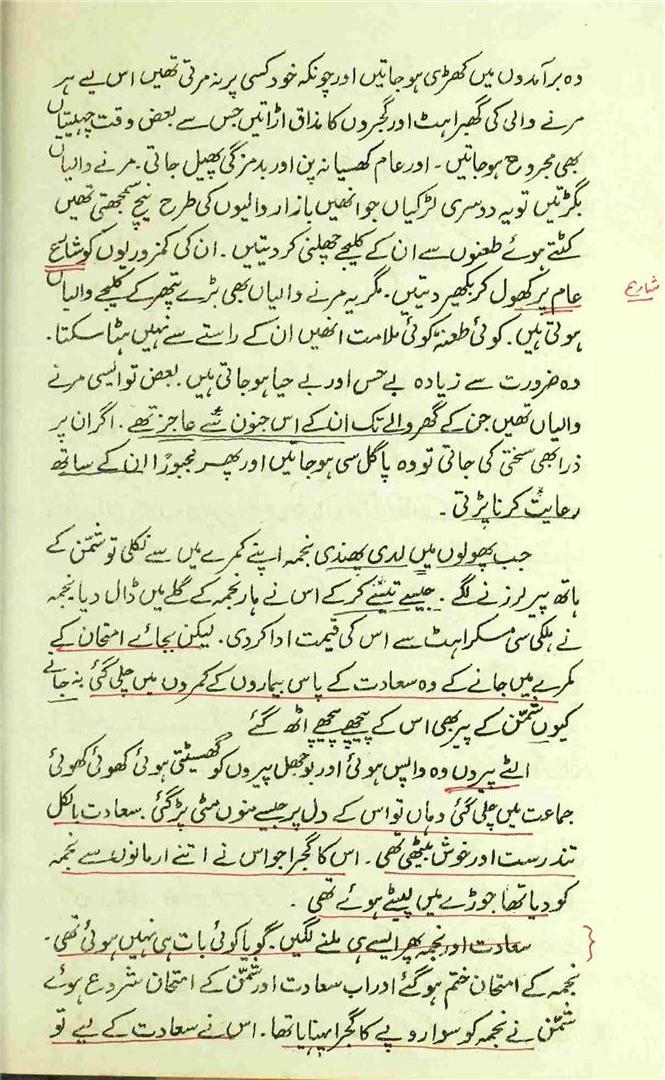 وہ برآمدوں میں کھڑی ہو جاتیں اور چونکہ خود کسی پر نہ مرتی تھیں اس لیے ہر
مرنے والی کی گھبراہٹ اور گجروں کا مذاق اڑاتیں جس سے بعض وقت چہیتیاں
بھی مجروح ہو جاتیں۔ اور عام کھسیانہ پن اور بدمزگی پھیل جاتی۔ مرنے والیاں
بگڑتیں تو یہ دوسری لڑکیاں جو انھیں بازار والیوں کی طرح نیچ سمجھتی تھیں
کٹتے ہوئے طعنوں سے ان کے کلیجے چھلنی کر دیتیں۔ ان کی کمزوریوں کو شایع
عام پر کھول کر بکھیر دیتیں۔ مگر یہ مرنے والیاں بھی بڑے پتھر کے کلیجے والیاں
شارع
ہوتی ہیں۔ کوئی طعنہ کوئی ملامت انھیں ان کے راستے سے نہیں ہٹا سکتا۔
وہ ضرورت سے زیادہ بے حس اور بے حیا ہو جاتی ہیں۔ بعض تو ایسی مرنے
والیاں تھیں جن کے گھر والے تک ان کے اس جنون سے عاجز تھے۔ اگر ان پر
ذرا بھی سختی کی جاتی تو وہ پاگل سی ہو جاتیں اور پھر مجبوراً ان کے ساتھ
رعایت کرنا پڑتی۔
جب پھولوں میں لدی پھندی نجمہ اپنے کمرے میں سے نکلی تو شمّن کے
ہاتھ پیر لرزنے لگے۔ جیسے تیسے کر کے اس نے ہار نجمہ کے گلے میں ڈال دیا نجمہ
نے ہلکی سی مسکراہٹ سے اس کی قیمت ادا کر دی۔ لیکن بجائے امتحان کے
کمرے میں جانے کے وہ سعادت کے پاس بیماروں کے کمروں میں چلی گئی نہ جانے
کیوں شمّن کے پیر بھی اس کے پیچھے پیچھے اٹھ گئے
الٹے پیروں وہ واپس ہوئی اور بوجھل پیروں کو گھسیٹتی ہوئی کھوئی کھوئی
جماعت میں چلی گئی وہاں تو اس کے دل پر جیسے منوں مٹی پڑ گئی۔ سعادت بالکل
تندرست اور خوش بیٹھی تھی۔ اس کا گجرا جو اس نے اتنے ارمانوں سے نجمہ
کو دیا تھا جوڑے میں لپیٹے ہوئے تھی۔
سعادت اور نجمہ پھر ایسے ہی ملنے لگیں۔ گویا کوئی بات ہی نہیں ہوئی تھی۔
نجمہ کے امتحان ختم ہو گئے اور اب سعادت اور شمّن کے امتحان شروع ہوئے
شمّن نے نجمہ کو سوا روپے کا گجرا پہنایا تھا۔ اس نے سعادت کے لیے تو